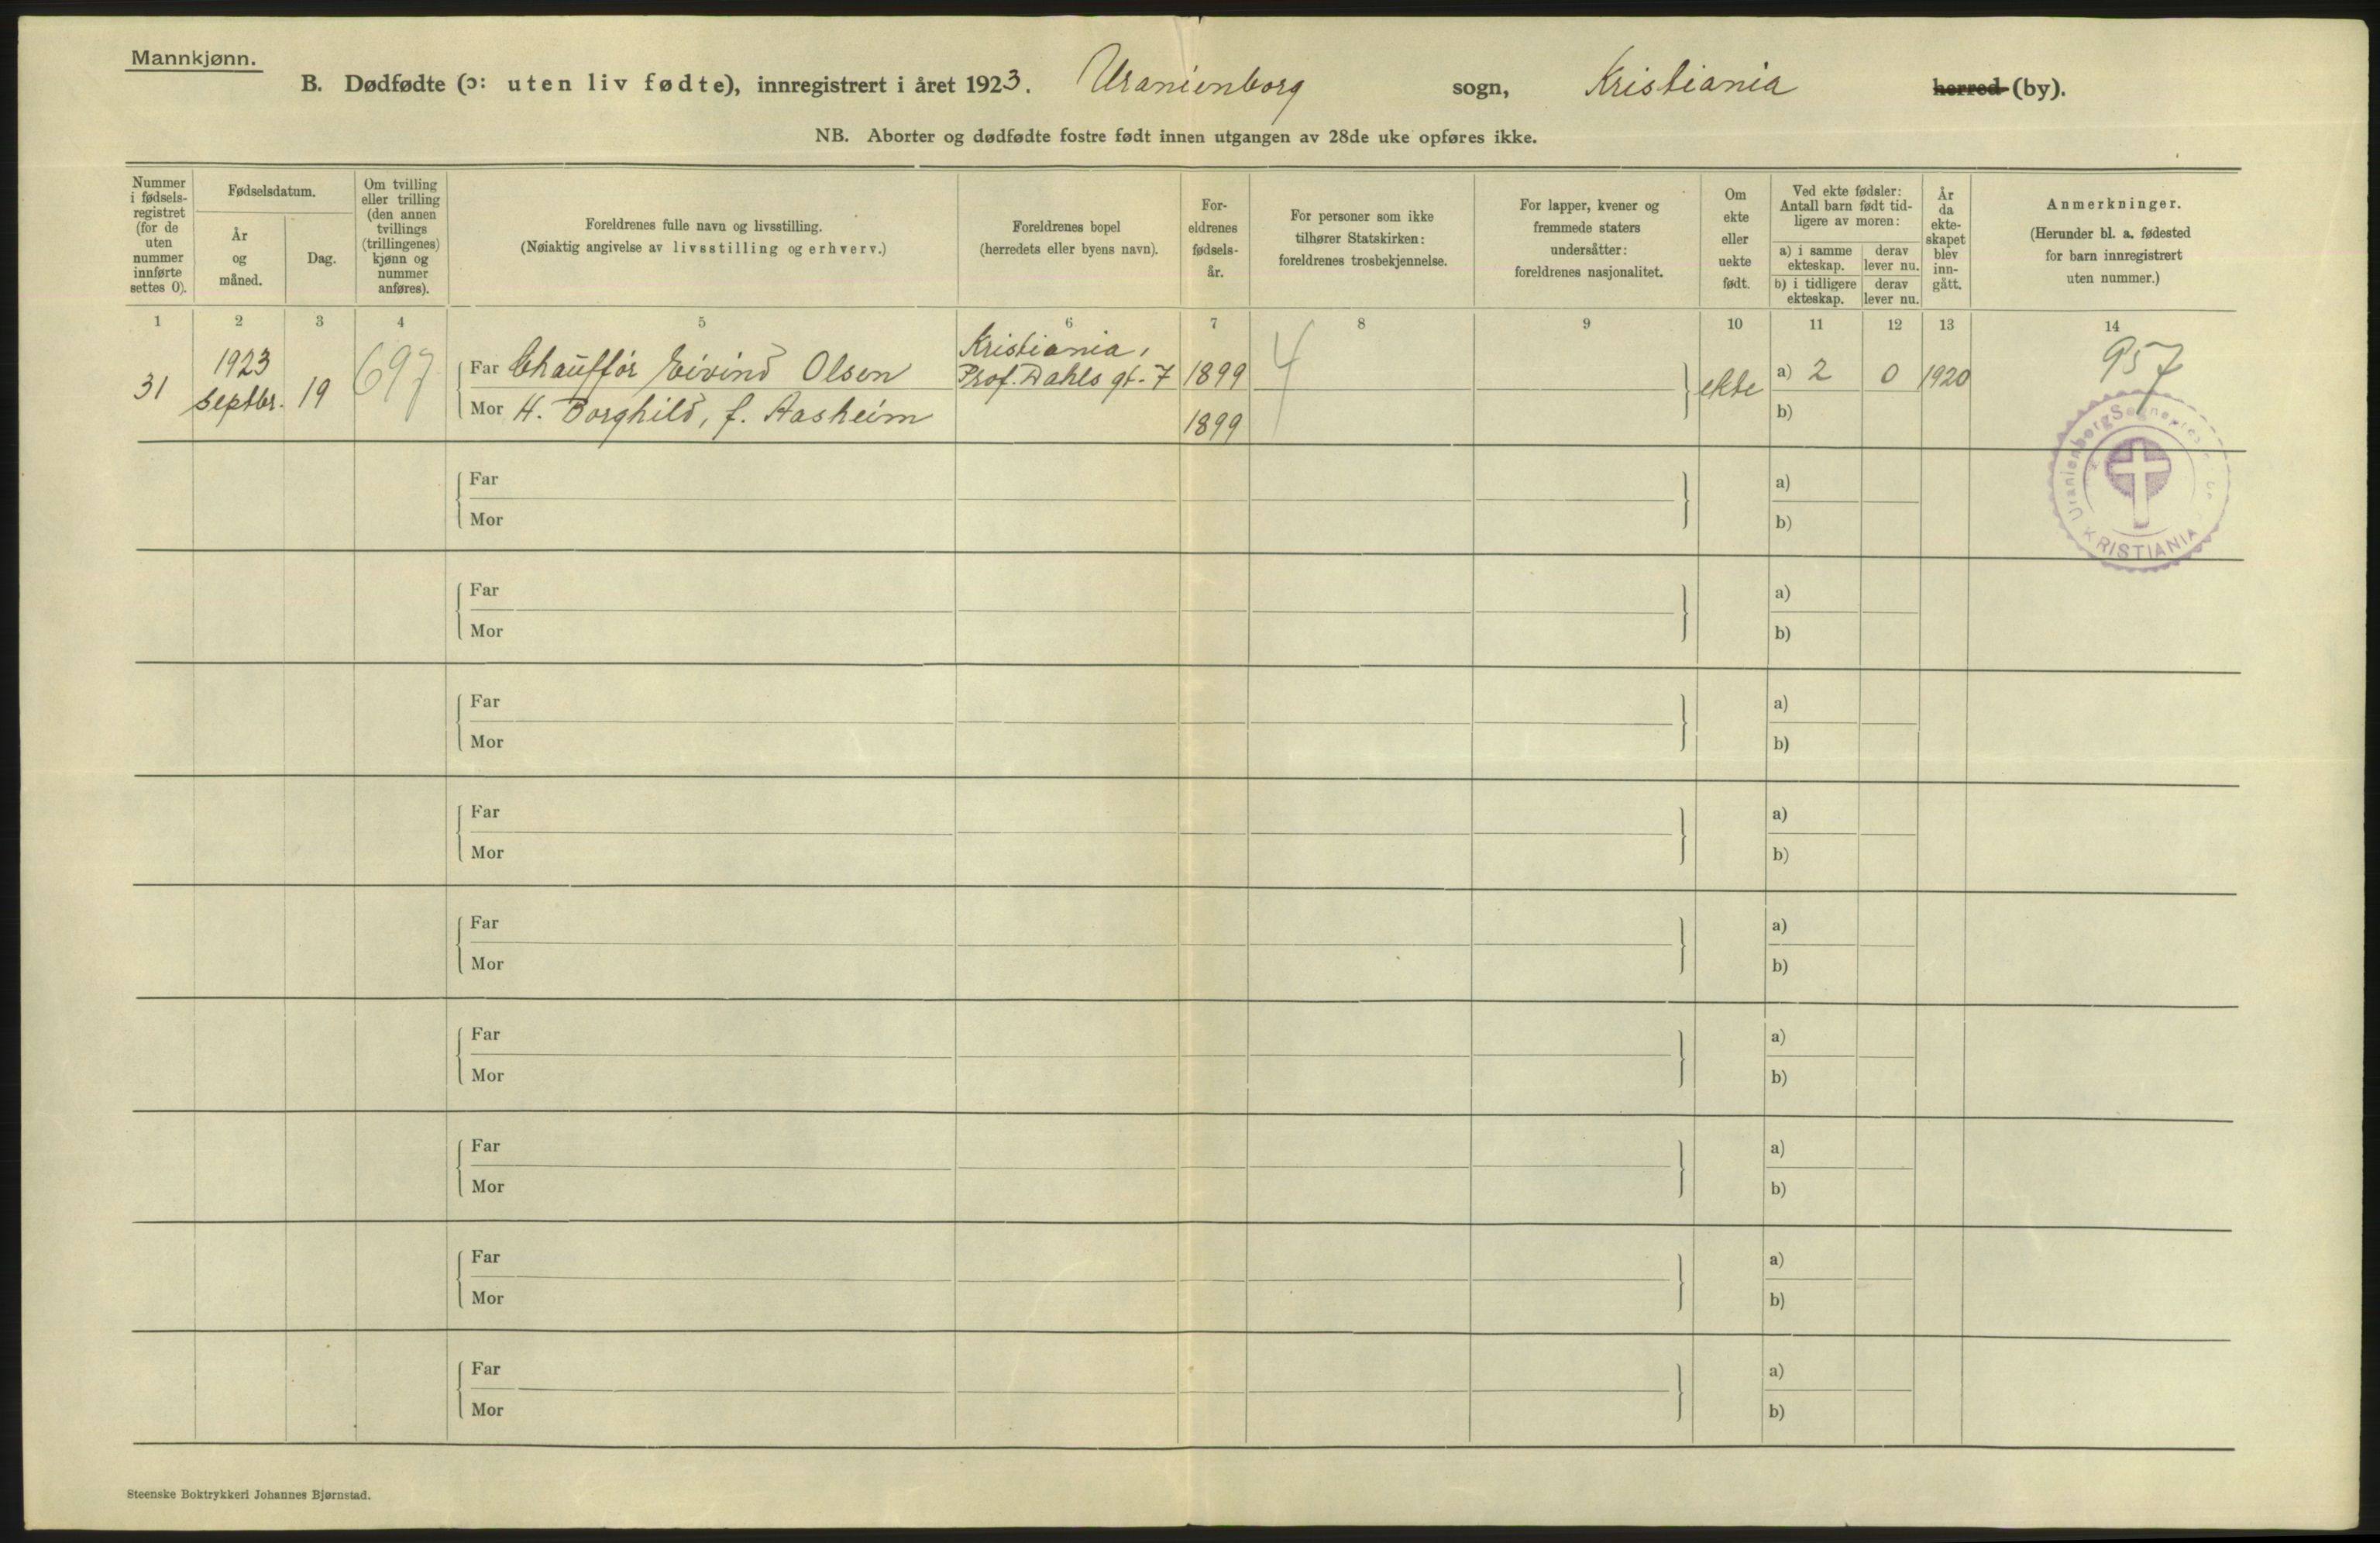 Mannkjønn.
B. Dødfødte (ɔ: uten liv fødte), innregistrert i året 1923. Uranienborg sogn, Kristiania herred (by).
NB. Aborter og dødfødte fostre født innen utgangen av 28de uke opføres ikke.
Nummer i fødsels-registret (for de uten nummer innførte settes 0).
Fødselsdatum.
År og måned.
Dag.
Om tvilling eller trilling (den annen tvillings (trillingenes) kjønn og nummer anføres).
Foreldrenes fulle navn og livsstilling.
(Nøiaktig angivelse av livsstilling og erhverv.)
Foreldrenes bopel
(herredets eller byens navn).
For-eldrenes fødsels-år.
For personer som ikke tilhører Statskirken: foreldrenes trosbekjennelse.
For lapper, kvener og fremmede staters undersåtter: foreldrenes nasjonalitet.
Om ekte eller uekte født.
Ved ekte fødsler: Antall barn født tid-ligere av moren:
a) i samme ekteskap.
derav lever nu.
b) i tidligere ekteskap.
derav lever nu.
År da ekte-skapet blev inn-gått.
Anmerkninger.
(Herunder bl. a. fødested for barn innregistrert uten nummer.)
1 2 3 4 5 6 7 8 9 10 11 12 13 14
31 1923 septbr. 19 697
Far Chauffør Eivind Olsen Kristiania, Prof. Dahls gt. 7 1899 4 ekte a) 2 0 1920 957
Mor H. Borghild, f. Aasheim 1899 b)
Uranienborg Sogneprest
KRISTIANIA
Far a)
Mor b)
Far a)
Mor b)
Far a)
Mor b)
Far a)
Mor b)
Far a)
Mor b)
Far a)
Mor b)
Far a)
Mor b)
Far a)
Mor b)
Far a)
Mor b)
Steenske Boktrykkeri Johannes Bjørnstad.